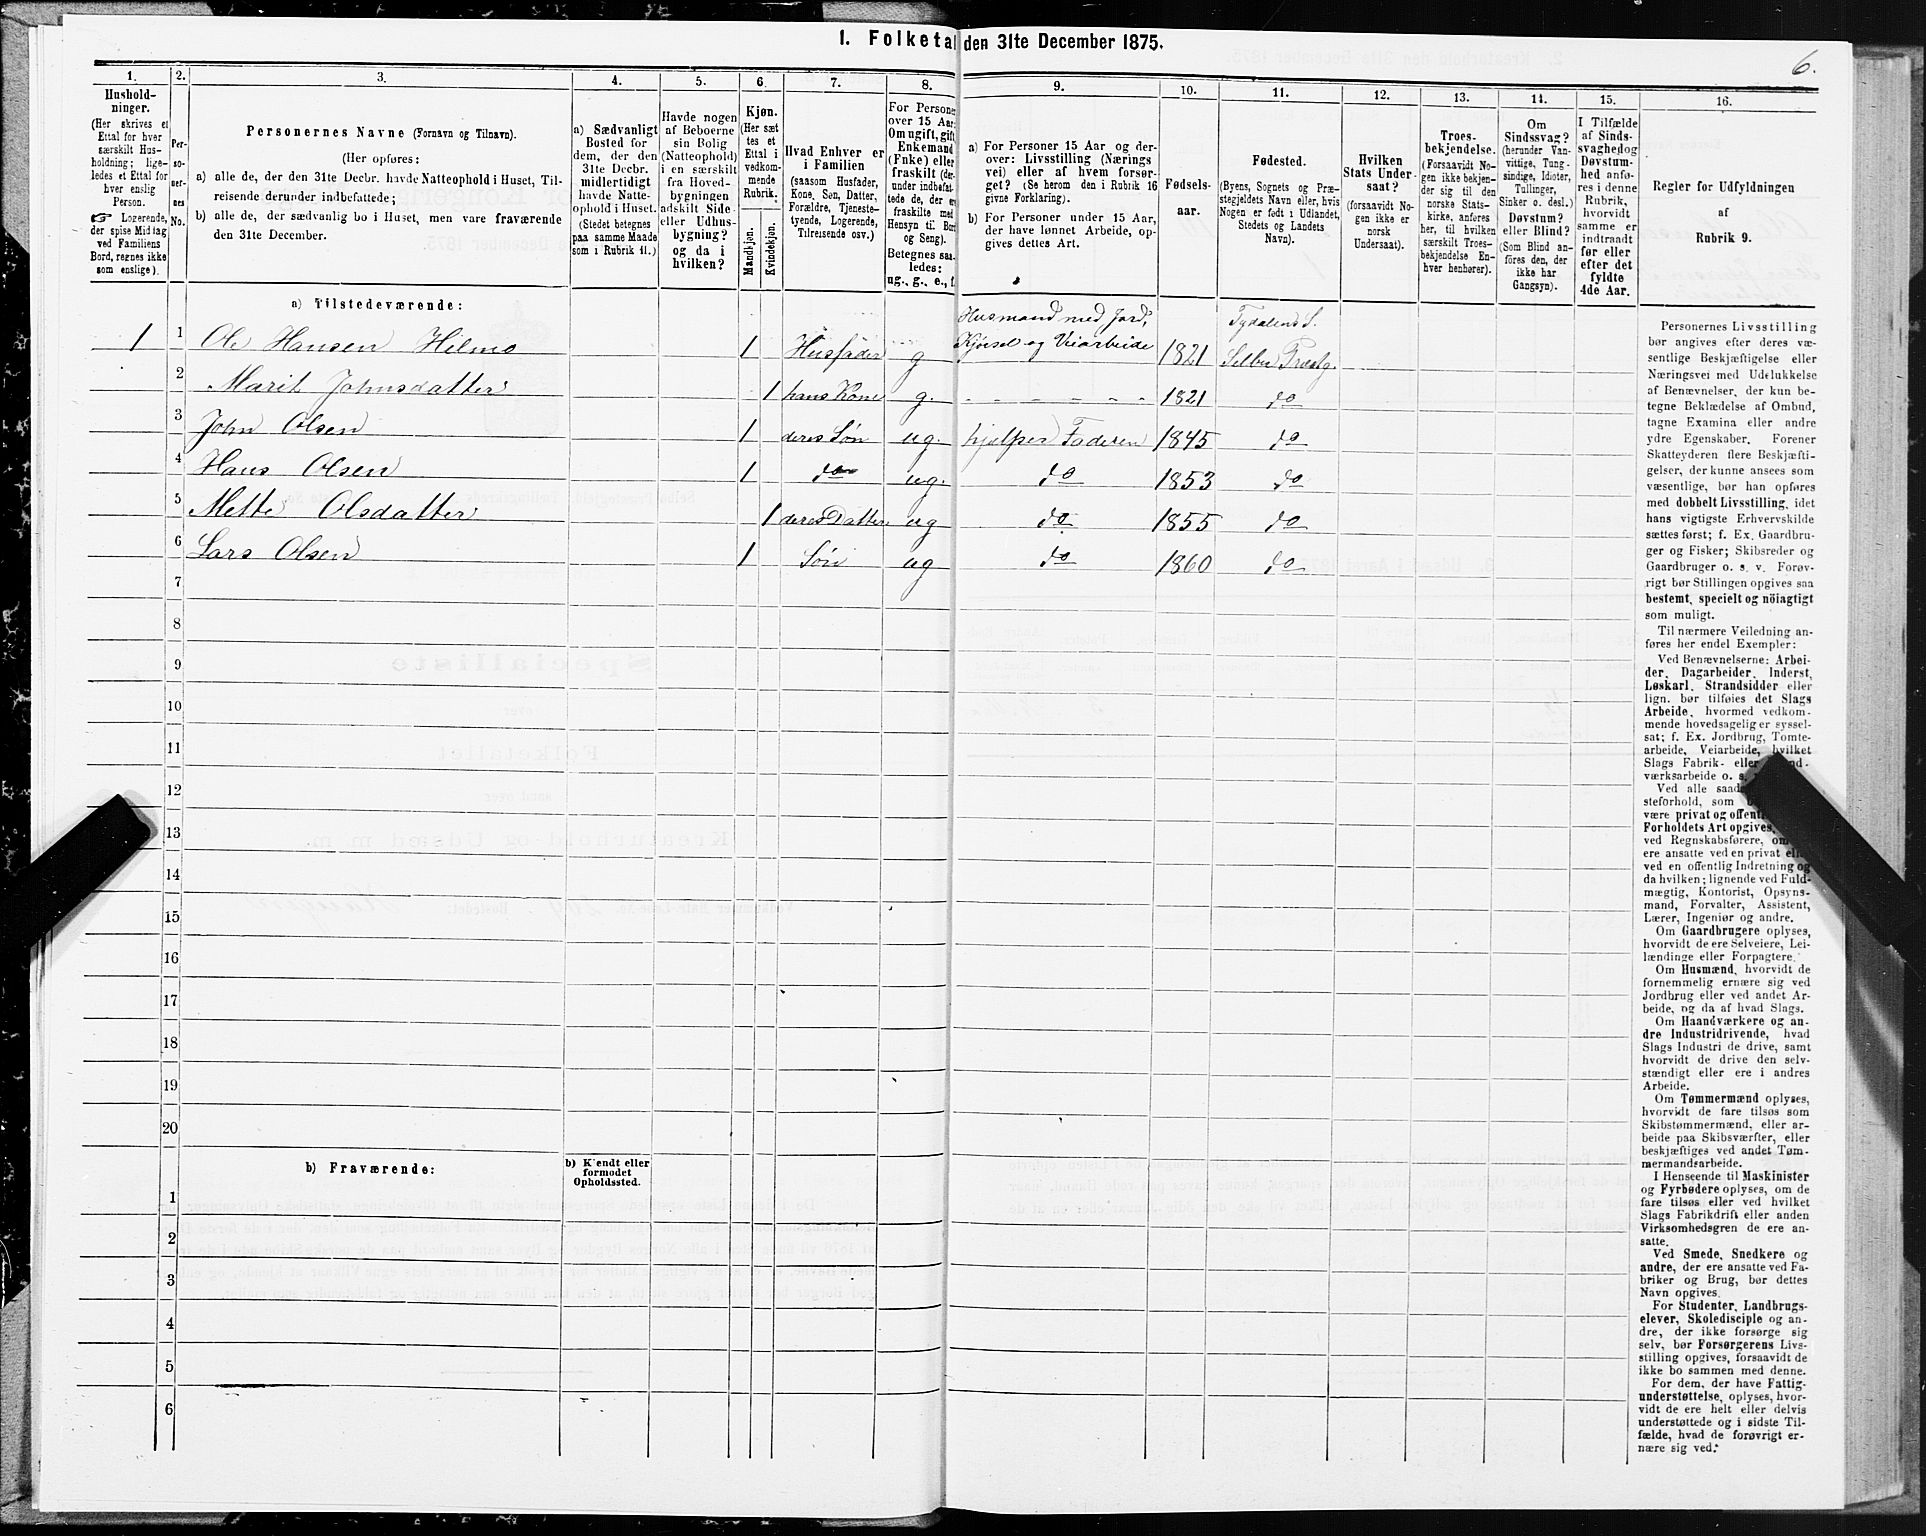 1. Folketal den 31te December 1875.
6.
1.
Hushold-
ninger.
(Her skrives et
Ettal for hver
særskilt Hus-
holdning; lige-
ledes et Ettal for
hver enslig
Person.
☞ Logerende,
der spise Middag
ved Familiens
Bord, regnes ikke
som enslige).
2.
Per-
so-
ner-
nes
No.
3.
Personernes Navne (Fornavn og Tilnavn).
(Her opføres:
a) alle de, der den 31te Decbr. havde Natteophold i Huset, Til-
reisende derunder indbefattede;
b) alle de, der sædvanlig bo i Huset, men vare fraværende
den 31te December.
4.
a) Sædvanligt
Bosted for
dem, der den
31te Decbr.
midlertidigt
havde Natte-
ophold i Huset.
(Stedet betegnes
paa samme Maade
som i Rubrik 11.)
5.
Havde nogen
af Beboerne
sin Bolig
(Natteophold)
i en særskilt
fra Hoved-
bygningen
adskilt Side-
eller Udhus-
bygning?
og da i
hvilken?
6.
Kjøn.
(Her sæt
tes et
Ettal i
vedkom-
mende
Rubrik.)
Mandkjøn.
Kvindekjøn.
7.
Hvad Enhver er
i Familien
(saasom Husfader,
Kone, Søn, Datter,
Forældre, Tjeneste-
tyende, Logerende,
Tilreisende osv.)
8.
For Personer
over 15 Aar:
Om ugift, gift,
Enkemand
(Enke) eller
fraskilt (der-
under indbefat-
tede de, der ere
fraskilte med
Hensyn til Bord
og Seng).
Betegnes saa-
ledes:
ug., g., e., f.
9.
a) For Personer 15 Aar og der-
over: Livsstilling (Nærings
vei) eller af hvem forsør-
get? (Se herom den i Rubrik 16
givne Forklaring).
b) For Personer under 15 Aar,
der have lønnet Arbeide, op-
gives dettes Art.
10.
Fødsels-
aar.
11.
Fødested.
(Byens, Sognets og Præ-
stegjeldets Navn eller, hvis
Nogen er født i Udlandet,
Stedets og Landets
Navn).
12.
Hvilken
Stats Under-
saat?
(forsaavidt No-
gen ikke er
norsk
Undersaat).
13.
Troes-
bekjendelse.
(Forsaavidt No-
gen ikke bekjen-
der sig til den
norske Stats-
kirke, anføres
her, til hvilken
særskilt Troes-
bekjendelse En-
hver henhører).
14.
Om
Sindssvag?
(herunder Van-
vittige, Tung-
sindige, Idioter,
Tullinger,
Sinker o. desl.)
Døvstum?
eller Blind?
(Som Blind an-
føres den, der
ikke har
Gangsyn).
15.
I Tilfælde
af Sinds-
svaghed og
Døvstum-
hed anfø-
res i denne
Rubrik,
hvorvidt
samme er
indtraadt
før eller
efter det
fyldte
4de Aar.
16.
Regler for Udfyldningen
af
Rubrik 9.
a) Tilstedeværende:
1 1 Ole Hansen Hilmo 1 Husfader g Husmand med Jord, Kjørsel og Veiarbeide 1821 Tydalens S. Selbu Præstg.
2 Marit Johnsdatter 1 hans Kone g. - - - - - - 1821 do
3 John Olsen 1 deres Søn ug. hjelper Faderen 1845 do
4 Hans Olsen 1 do ug. do 1853 do
5 Mette Olsdatter 1 deres Datter ug do 1855 do
6 Lars Olsen 1 Søn ug do 1860 do
7
8
9
10
11
12
13
14
15
16
17
18
19
20
b) Fraværende:
b) Kjendt eller
formodet
Opholdssted.
1
2
3
4
5
6
Personernes Livsstilling
bør angives efter deres væ-
sentlige Beskjæftigelse eller
Næringsvei med Udelukkelse
af Benævnelser, der kun be-
tegne Beklædelse af Ombud,
tagne Examina eller andre
ydre Egenskaber. Forener
Skatteyderen flere Beskjæfti-
gelser, der kunne ansees som
væsentlige, bør han opføres
med dobbelt Livsstilling, idet
hans vigtigste Erhvervskilde
sættes først; f. Ex. Gaardbru-
ger og Fisker; Skibsreder og
Gaardbruger o. s. v. Forøv-
rigt bør Stillingen opgives saa
bestemt, specielt og nöiagtigt
som muligt.
Til nærmere Veiledning an-
føres her endel Exempler:
Ved Benævnelserne: Arbei-
der, Dagarbeider, Inderst,
Løskarl, Strandsidder eller
lign. bør tilføies det Slags
Arbeide, hvormed vedkom-
mende hovedsagelig er syssel-
sat; f. Ex. Jordbrug, Tomte-
arbeide, Veiarbeide, hvilket
Slags Fabrik- eller
værksarbeide o. s.
Ved alle
steforhold, som
være privat og
Forholdets Art opgives,
ved Regnskabsførere,
ere ansatte ved en privat
ved en offentlig Indretning og
da hvilken; lignende ved Fuld-
mægtig, Kontorist, Opsyns-
mand, Forvalter, Assistent,
Lærer, Ingeniør og andre.
Om Gaardbrugere oplyses,
hvorvidt de ere Selveiere, Lei-
lændinge eller Forpagtere.
Om Husmænd, hvorvidt de
fornemmelig ernære sig ved
Jordbrug eller ved andet Ar-
beide, og da af hvad Slags.
Om Haandværkere og an-
dre Industridrivende, hvad
Slags Industri de drive, samt
hvorvidt de drive den selv-
stændigt eller ere i andres
Arbeide.
Om Tømmermænd oplyses,
hvorvidt de fare tilsøs som
Skibstømmermænd, eller ar-
beide paa Skibsværfter, eller
beskjæftiges ved andet Tøm-
mermandsarbeide.
I Henseende til Maskinister
og Fyrbødere oplyses, om de
fare tilsøs eller ved hvilket
Slags Fabrikdrift eller anden
Virksomhedsgren de ere an-
satte.
Ved Smede, Snedkere og
andre, der ere ansatte ved Fa-
briker og Brug, bør dettes
Navn opgives.
For Studenter, Landbrugs-
elever, Skoledisciple og an-
dre, der ikke forsørge sig
selv, bør Forsørgerens Livs-
stilling opgives, forsaavidt de
ikke bo sammen med denne.
For dem, der have Fattig-
understøttelse, oplyses, hvor-
vidt de ere helt eller delvis
understøttede og i sidste Til-
fælde, hvad de forøvrigt er-
nære sig ved.